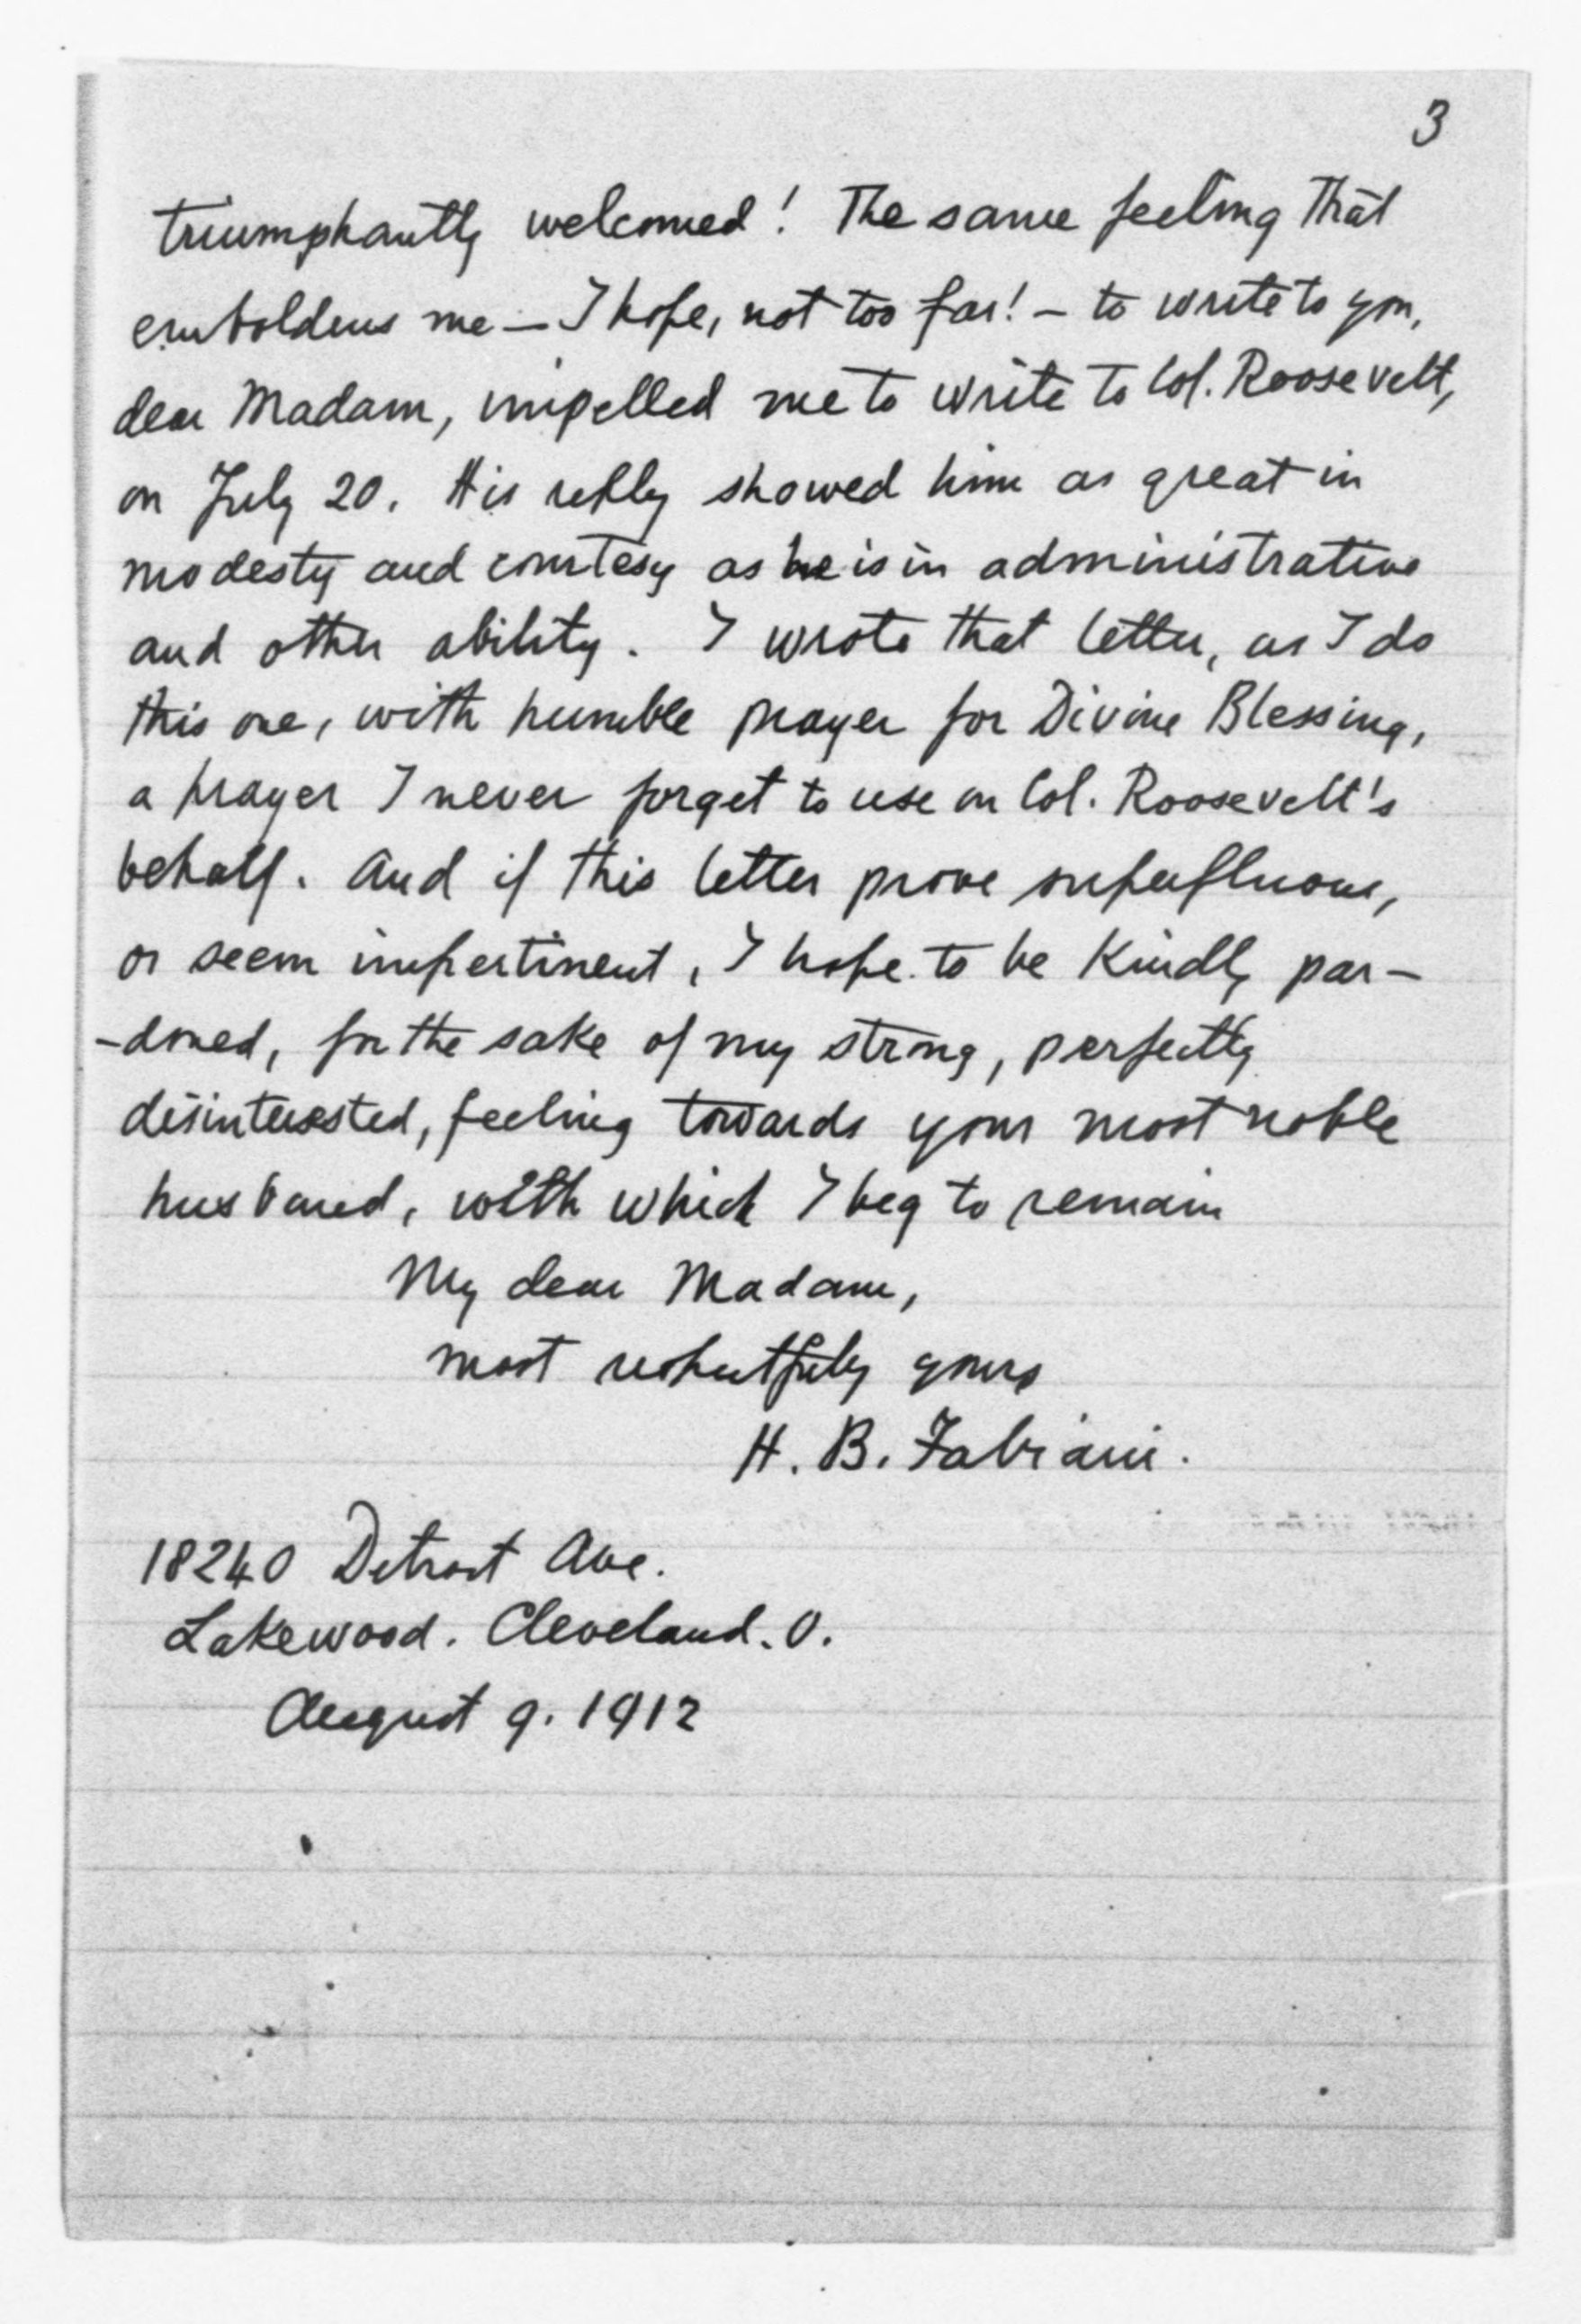 3
triumphantly welcomed! The same feeling that
emboldens me — I hope, not too far! — to write to you,
dear Madam, impelled me to write to Col. Roosevelt,
on July 20. His reply showed him as great in
modesty and courtesy as he is in administrative
and other ability. I wrote that letter, as I do
this one, with humble prayer for Divine Blessing,
a prayer I never forget to use on Col. Roosevelt's
behalf. And if this letter prove superfluous,
or seem impertinent, I hope to be kindly par-
-doned, for the sake of my strong, perfectly
disinterested, feeling towards your most noble
husband, with which I beg to remain
My dear Madam,
most respectfully yours
H. B. Fabiani.
18240 Detroit Ave.
Lakewood. Cleveland. O.
August 9. 1912